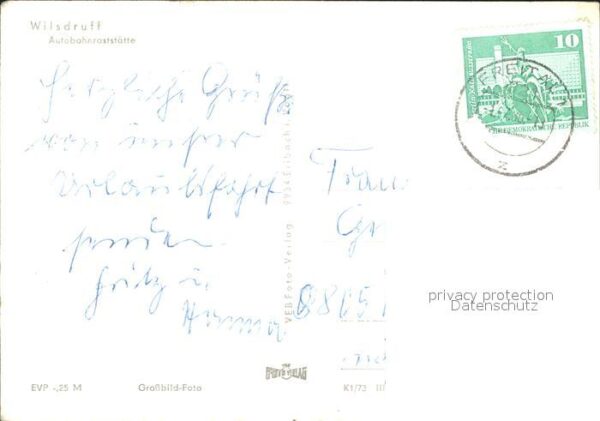 Wilsdruff
Autobahnraststätte
Herzliche Grüße
von unser
Urlaubsfahrt
senden
Fritz u.
Hanna
VEB Foto-Verlag 9934 Erlbach
Frau
8805
10
DEMOKRATISCHE REPUBLIK
FREITAL 1
z
privacy protection
Datenschutz
EVP -,25 M
Großbild-Foto
K1/73